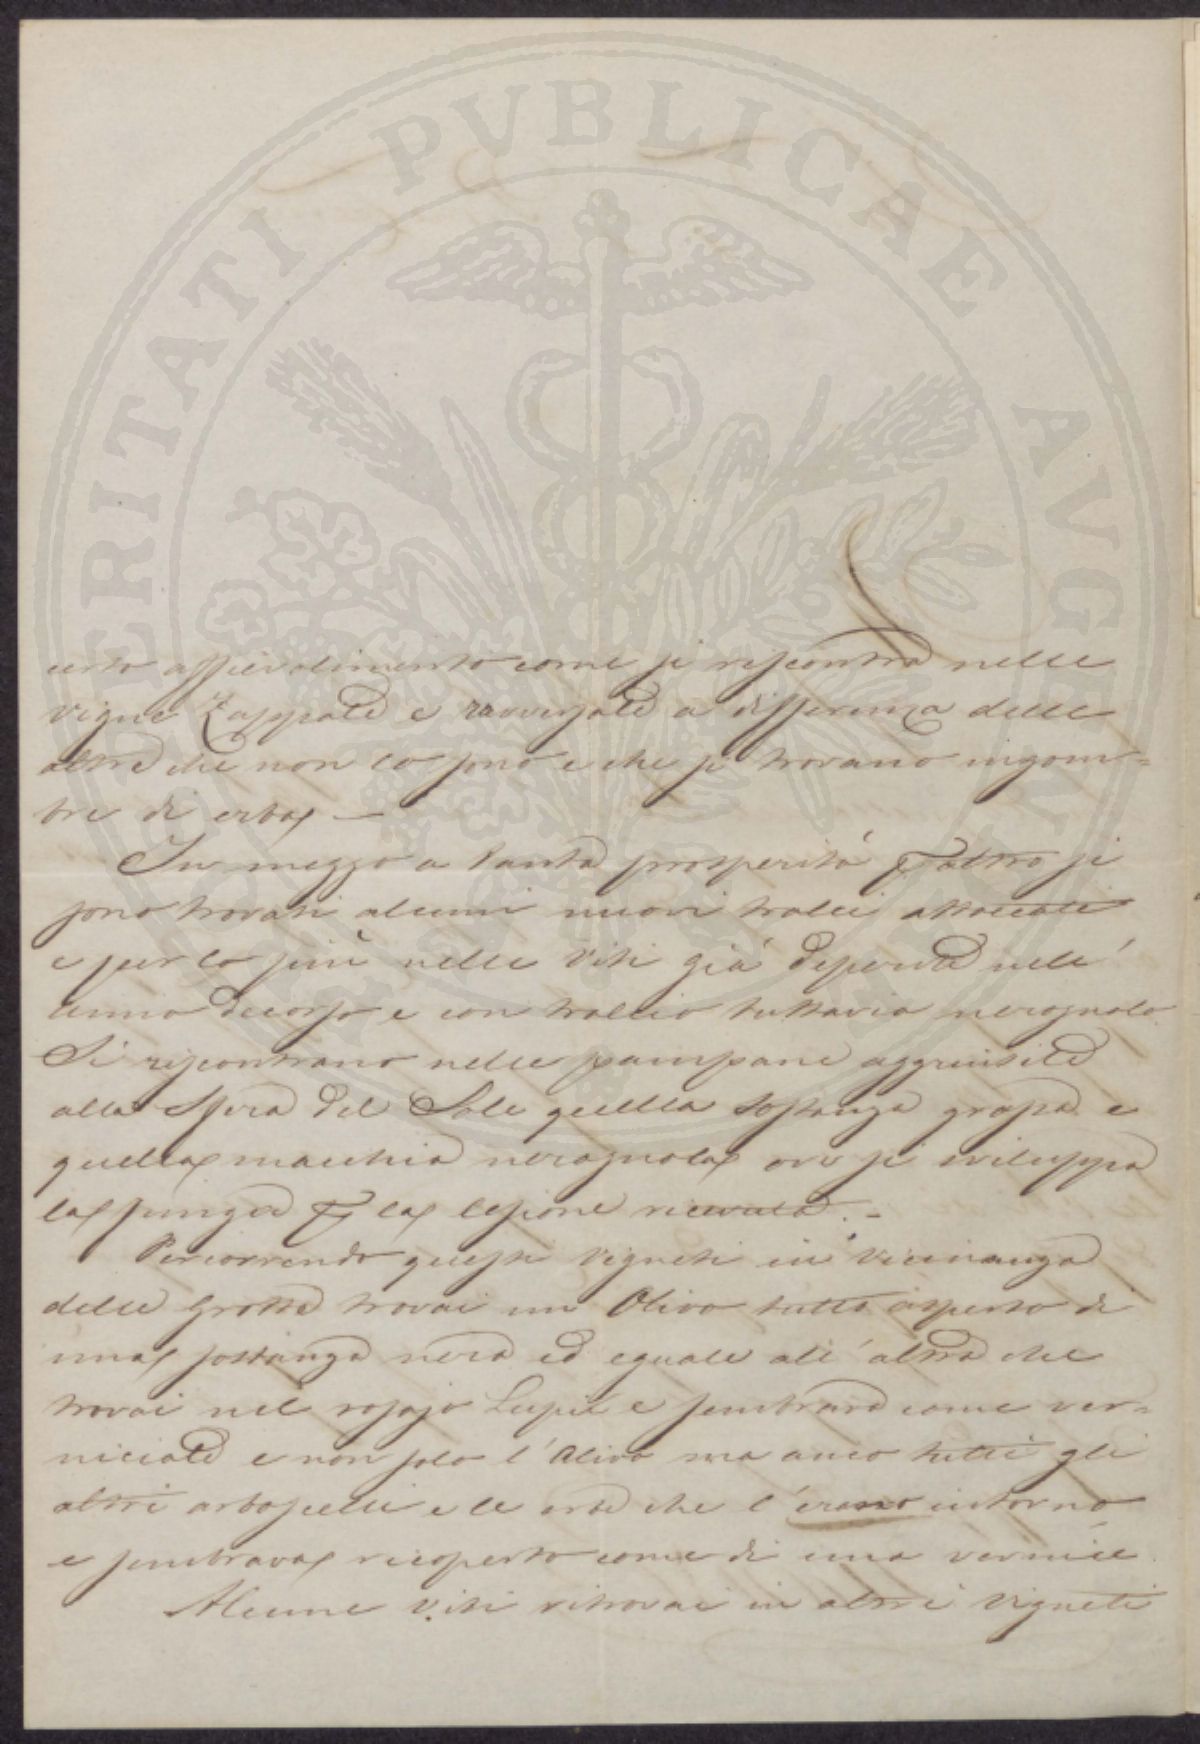 PVBLICAE AVGEN
ERITATI
certo affievolimento come si riscontra nelle
vigne Zappate e rovesciate a differenza delle
altre che non lo sono e che si trovano ingom=
bre di erba —
In mezzo a tanta prosperità peraltro si
sono trovati alcuni nuovi tralci attaccati
e per lo più nelle Viti già deperite nell'
anno decorso e con tralcio tuttavia nerognolo
Si riscontrano nelle pampane aggrinsite
alla Spera del Sole quella sostanza grassa e
quella macchia nerognola ove si sviluppa
la funga per la lesione ricevuta. -
Percorrendo questi vigneti in vicinanza
delle Grotte trovai un Olivo tutto asperso di
una sostanza nera ed eguale all'altra che
trovai nel rosajo Lupié e sembrava come ver=
niciate e non solo l'Olivo ma anco tutti gli
altri arboscelli e le erbe che l'erano intorno
e sembrava ricoperto come di una vernice.
Alcune Viti ritrovai in altri Vigneti